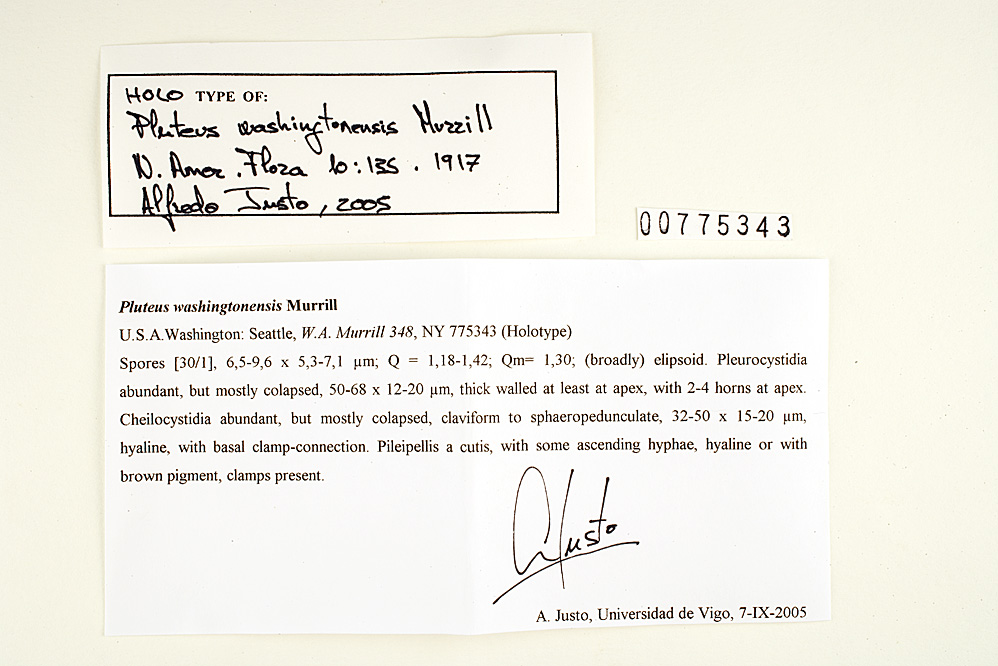 HOLO TYPE OF:
Pluteus washingtonensis Murrill
N. Amer. Flora 10:135. 1917
Alfredo Justo, 2005
00775343
Pluteus washingtonensis Murrill
U.S.A.Washington: Seattle, W.A. Murrill 348, NY 775343 (Holotype)
Spores [30/1], 6,5-9,6 x 5,3-7,1 µm; Q = 1,18-1,42; Qm= 1,30; (broadly) elipsoid. Pleurocystidia
abundant, but mostly colapsed, 50-68 x 12-20 µm, thick walled at least at apex, with 2-4 horns at apex.
Cheilocystidia abundant, but mostly colapsed, claviform to sphaeropedunculate, 32-50 x 15-20 µm,
hyaline, with basal clamp-connection. Pileipellis a cutis, with some ascending hyphae, hyaline or with
brown pigment, clamps present.
A Justo
A. Justo, Universidad de Vigo, 7-IX-2005